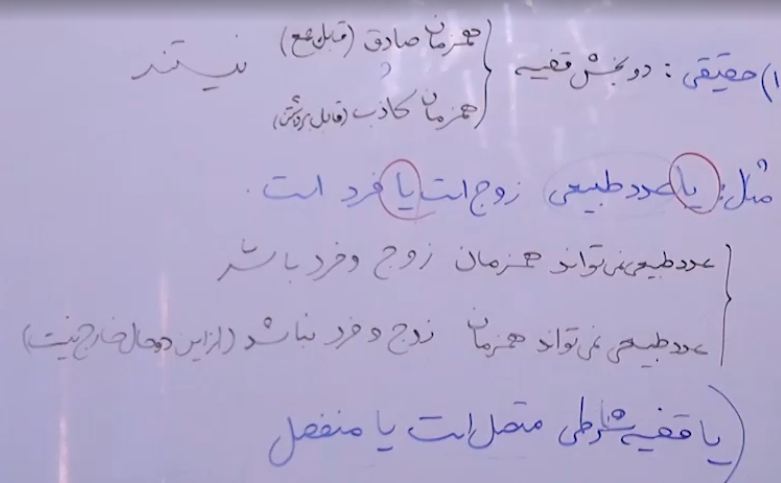 ۱) حقیقی : دو بخش قضیه { همزمان صادق (قابل جمع) نیستند
و
همزمان کاذب (قابل برداشتن)
مثل: یا عدد طبیعی زوج است یا فرد است.
عدد طبیعی نمی تواند همزمان زوج و فرد باشد
عدد طبیعی نمی تواند همزمان زوج و فرد نباشد (از این دو حال خارج نیست)
یا قضیه شرطی متصل است یا منفصل